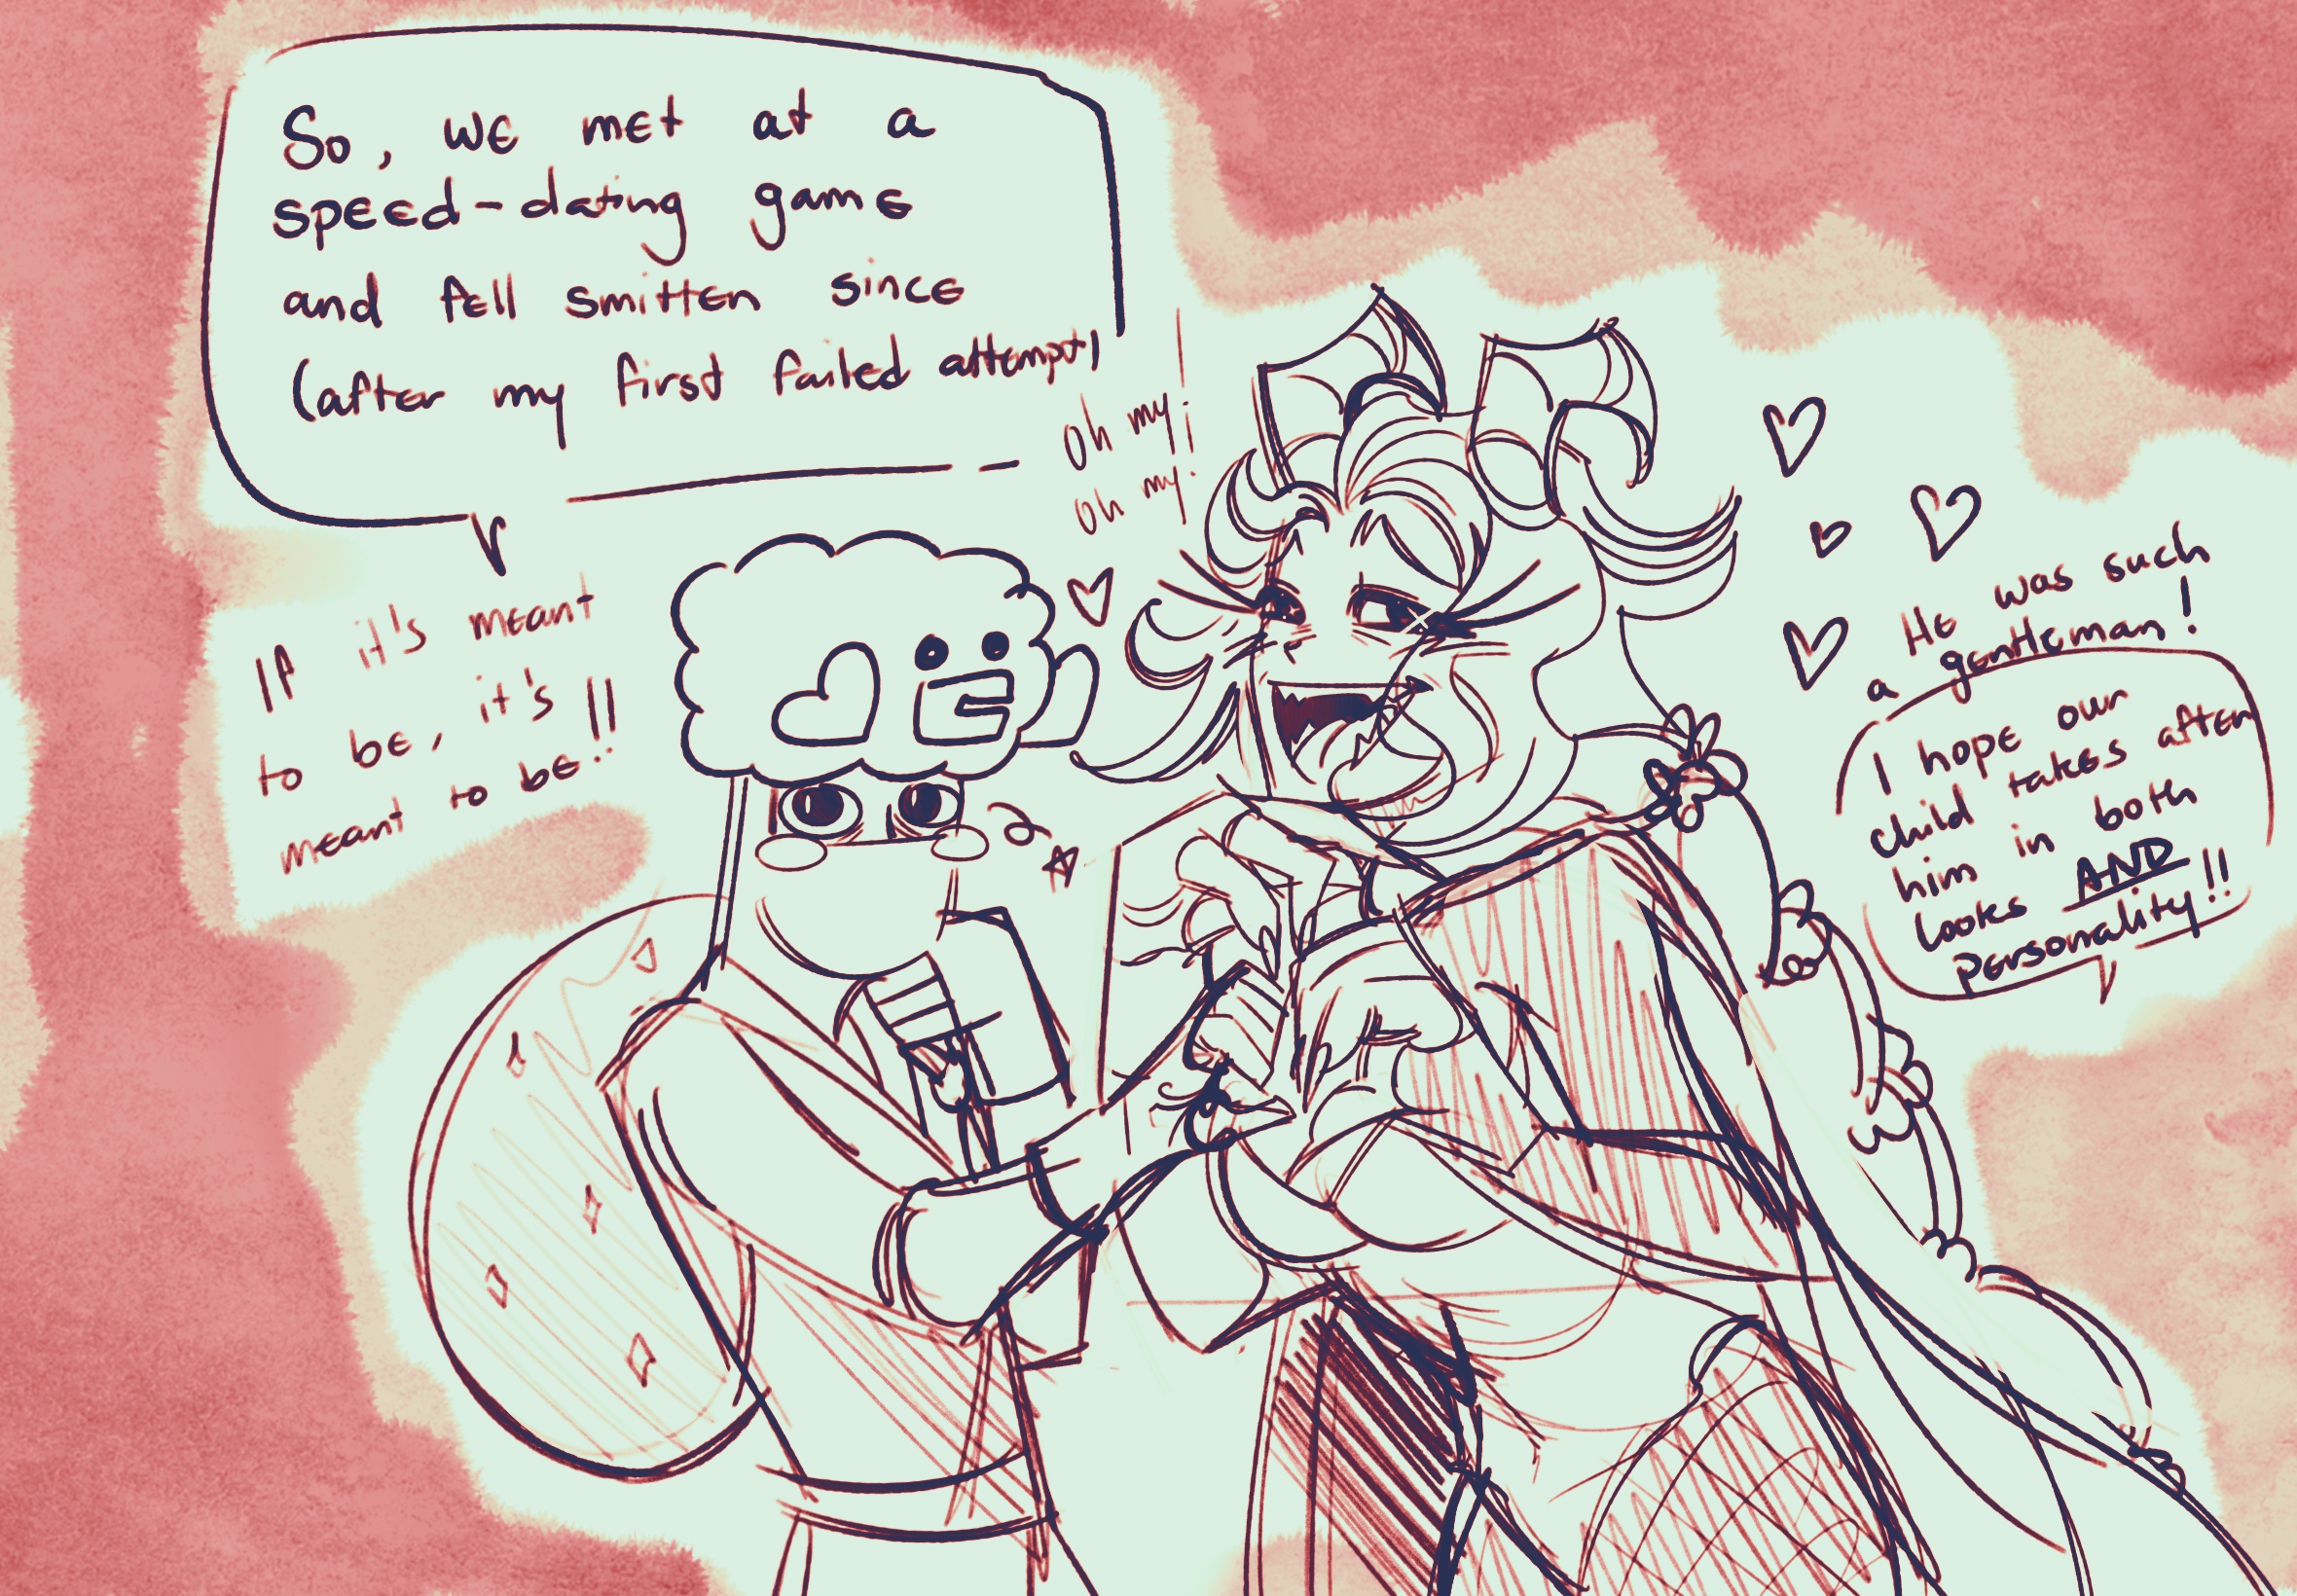 So, we met at a
speed-dating game
and fell smitten since
(after my first failed attempt)
oh my!
oh my!
If it's meant
to be, it's
meant to be!!
He was such
a gentleman!
I hope our
child takes after
him in both
looks AND
personality!!